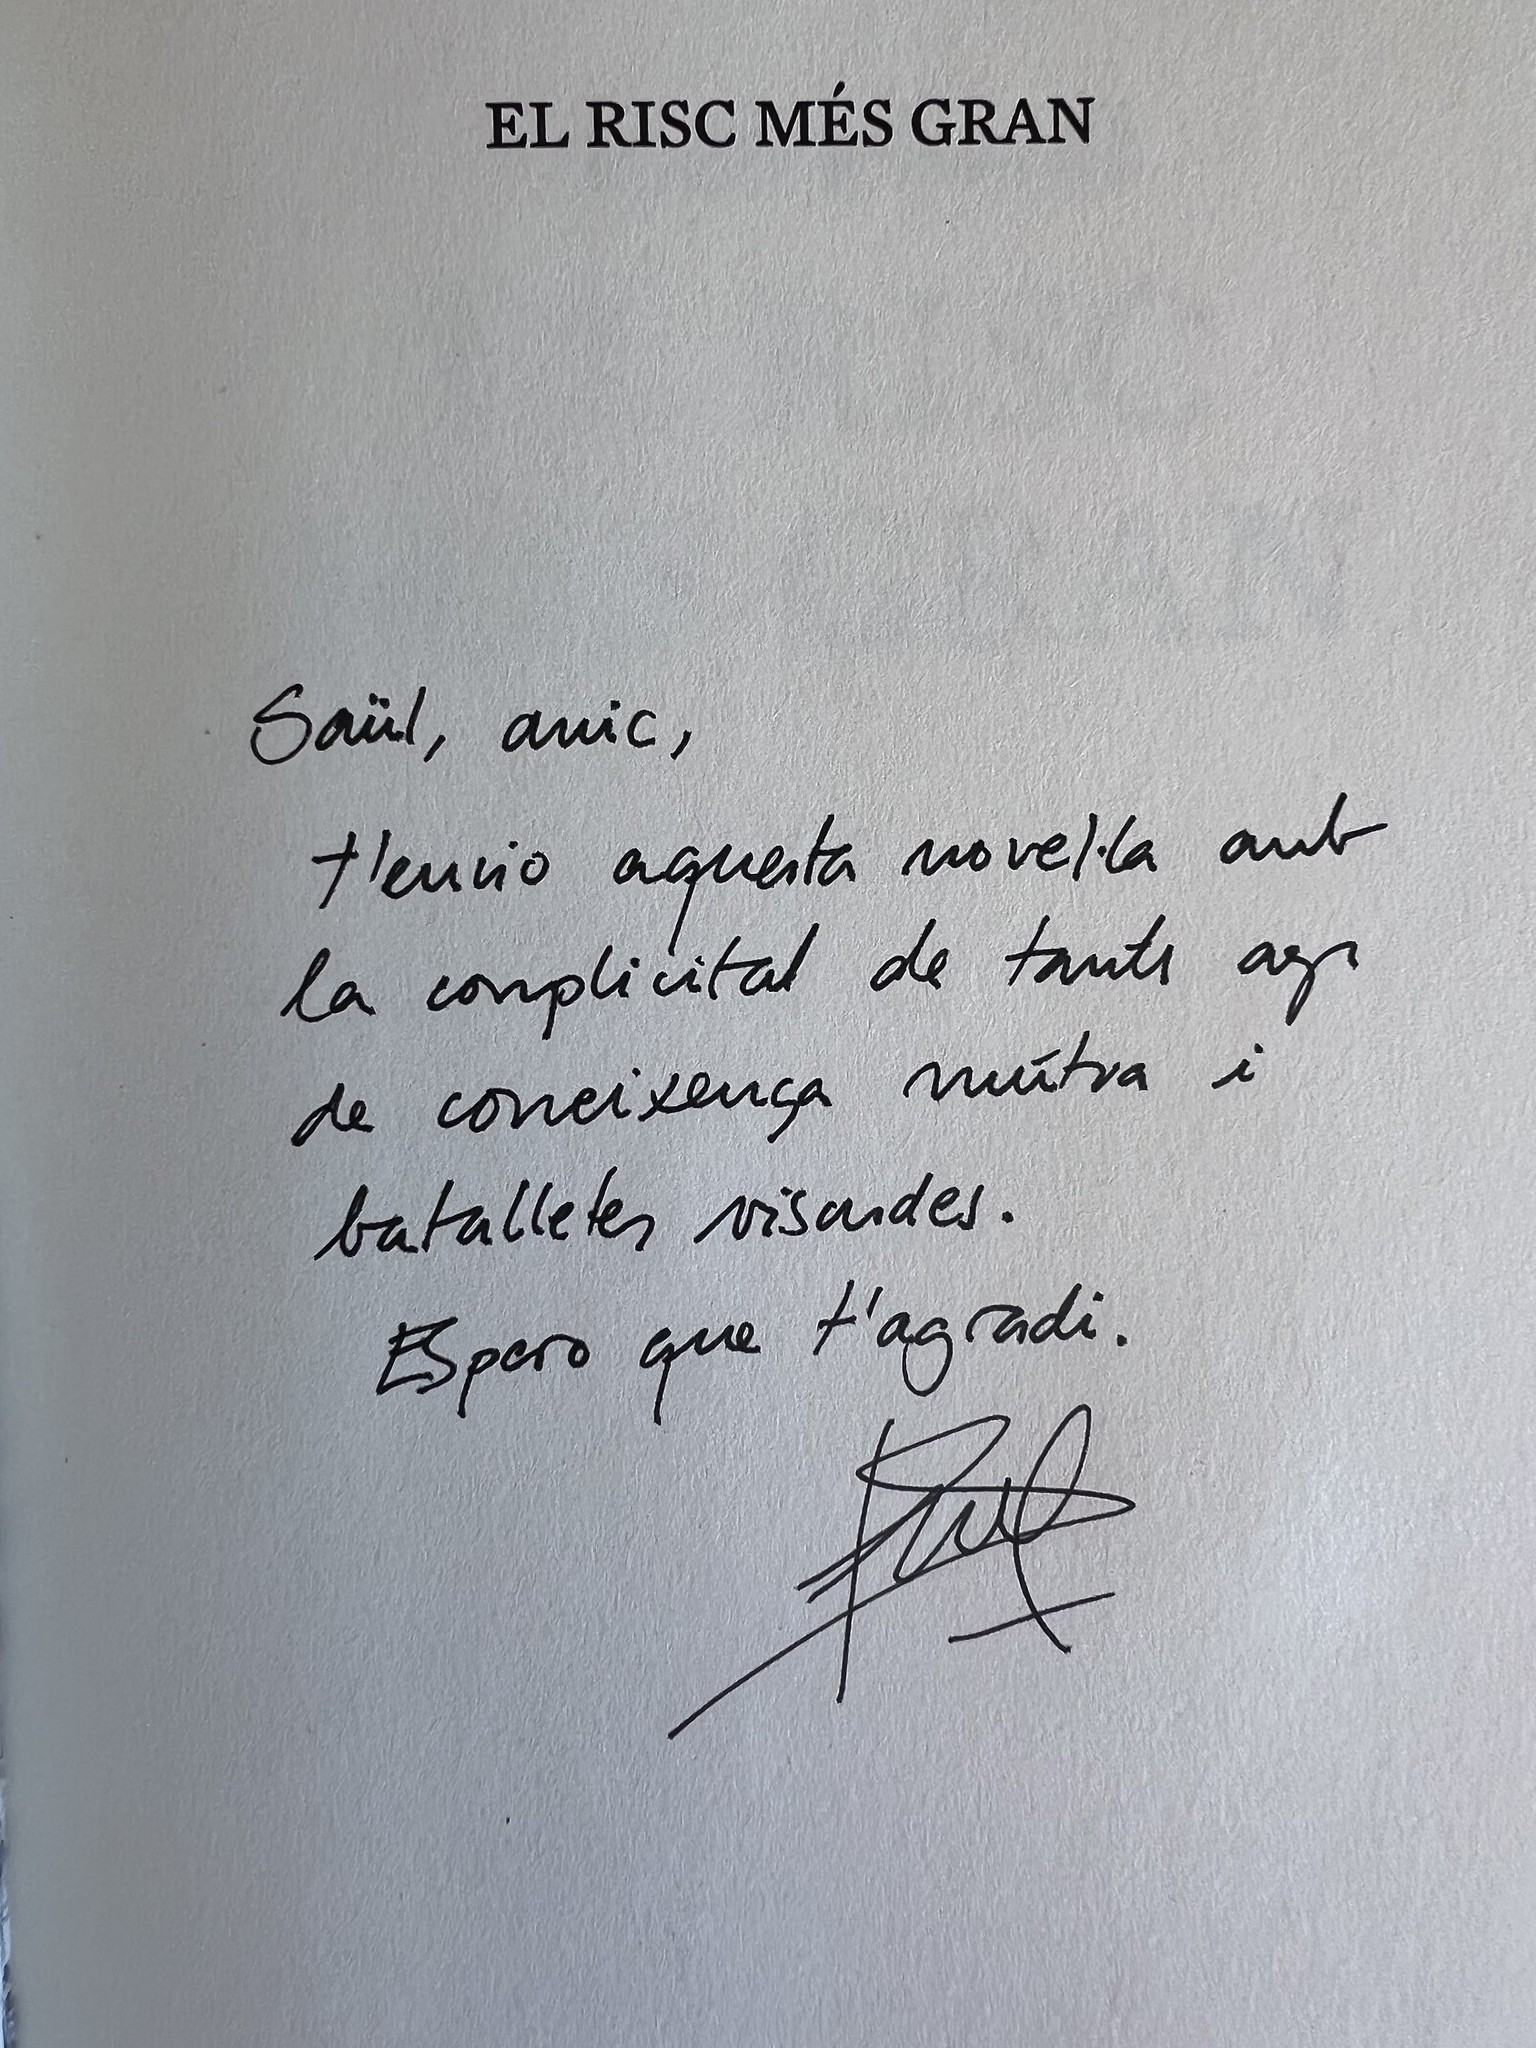 EL RISC MÉS GRAN
Saül, amic,
t'envio aquesta novel·la amb
la complicitat de tants anys
de coneixença mútua i
batalletes viscudes.
Espero que t'agradi.